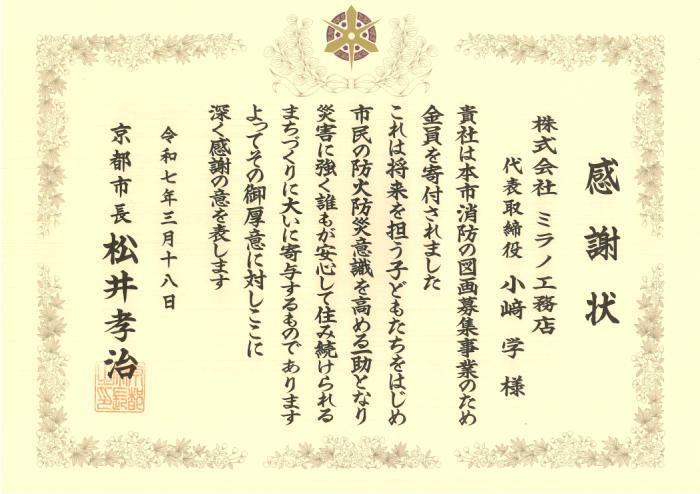 感謝状
株式会社 ミラノ工務店
代表取締役 小﨑 学 様
貴社は本市消防の図画募集事業のため
金員を寄付されました
これは将来を担う子どもたちをはじめ
市民の防火防災意識を高める一助となり
災害に強く誰もが安心して住み続けられる
まちづくりに大いに寄与するものであります
よってその御厚意に対しここに
深く感謝の意を表します
令和七年三月十八日
京都市長 松井孝治